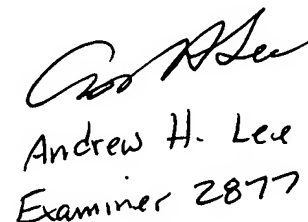 Andrew H. Lee
Examiner 2877